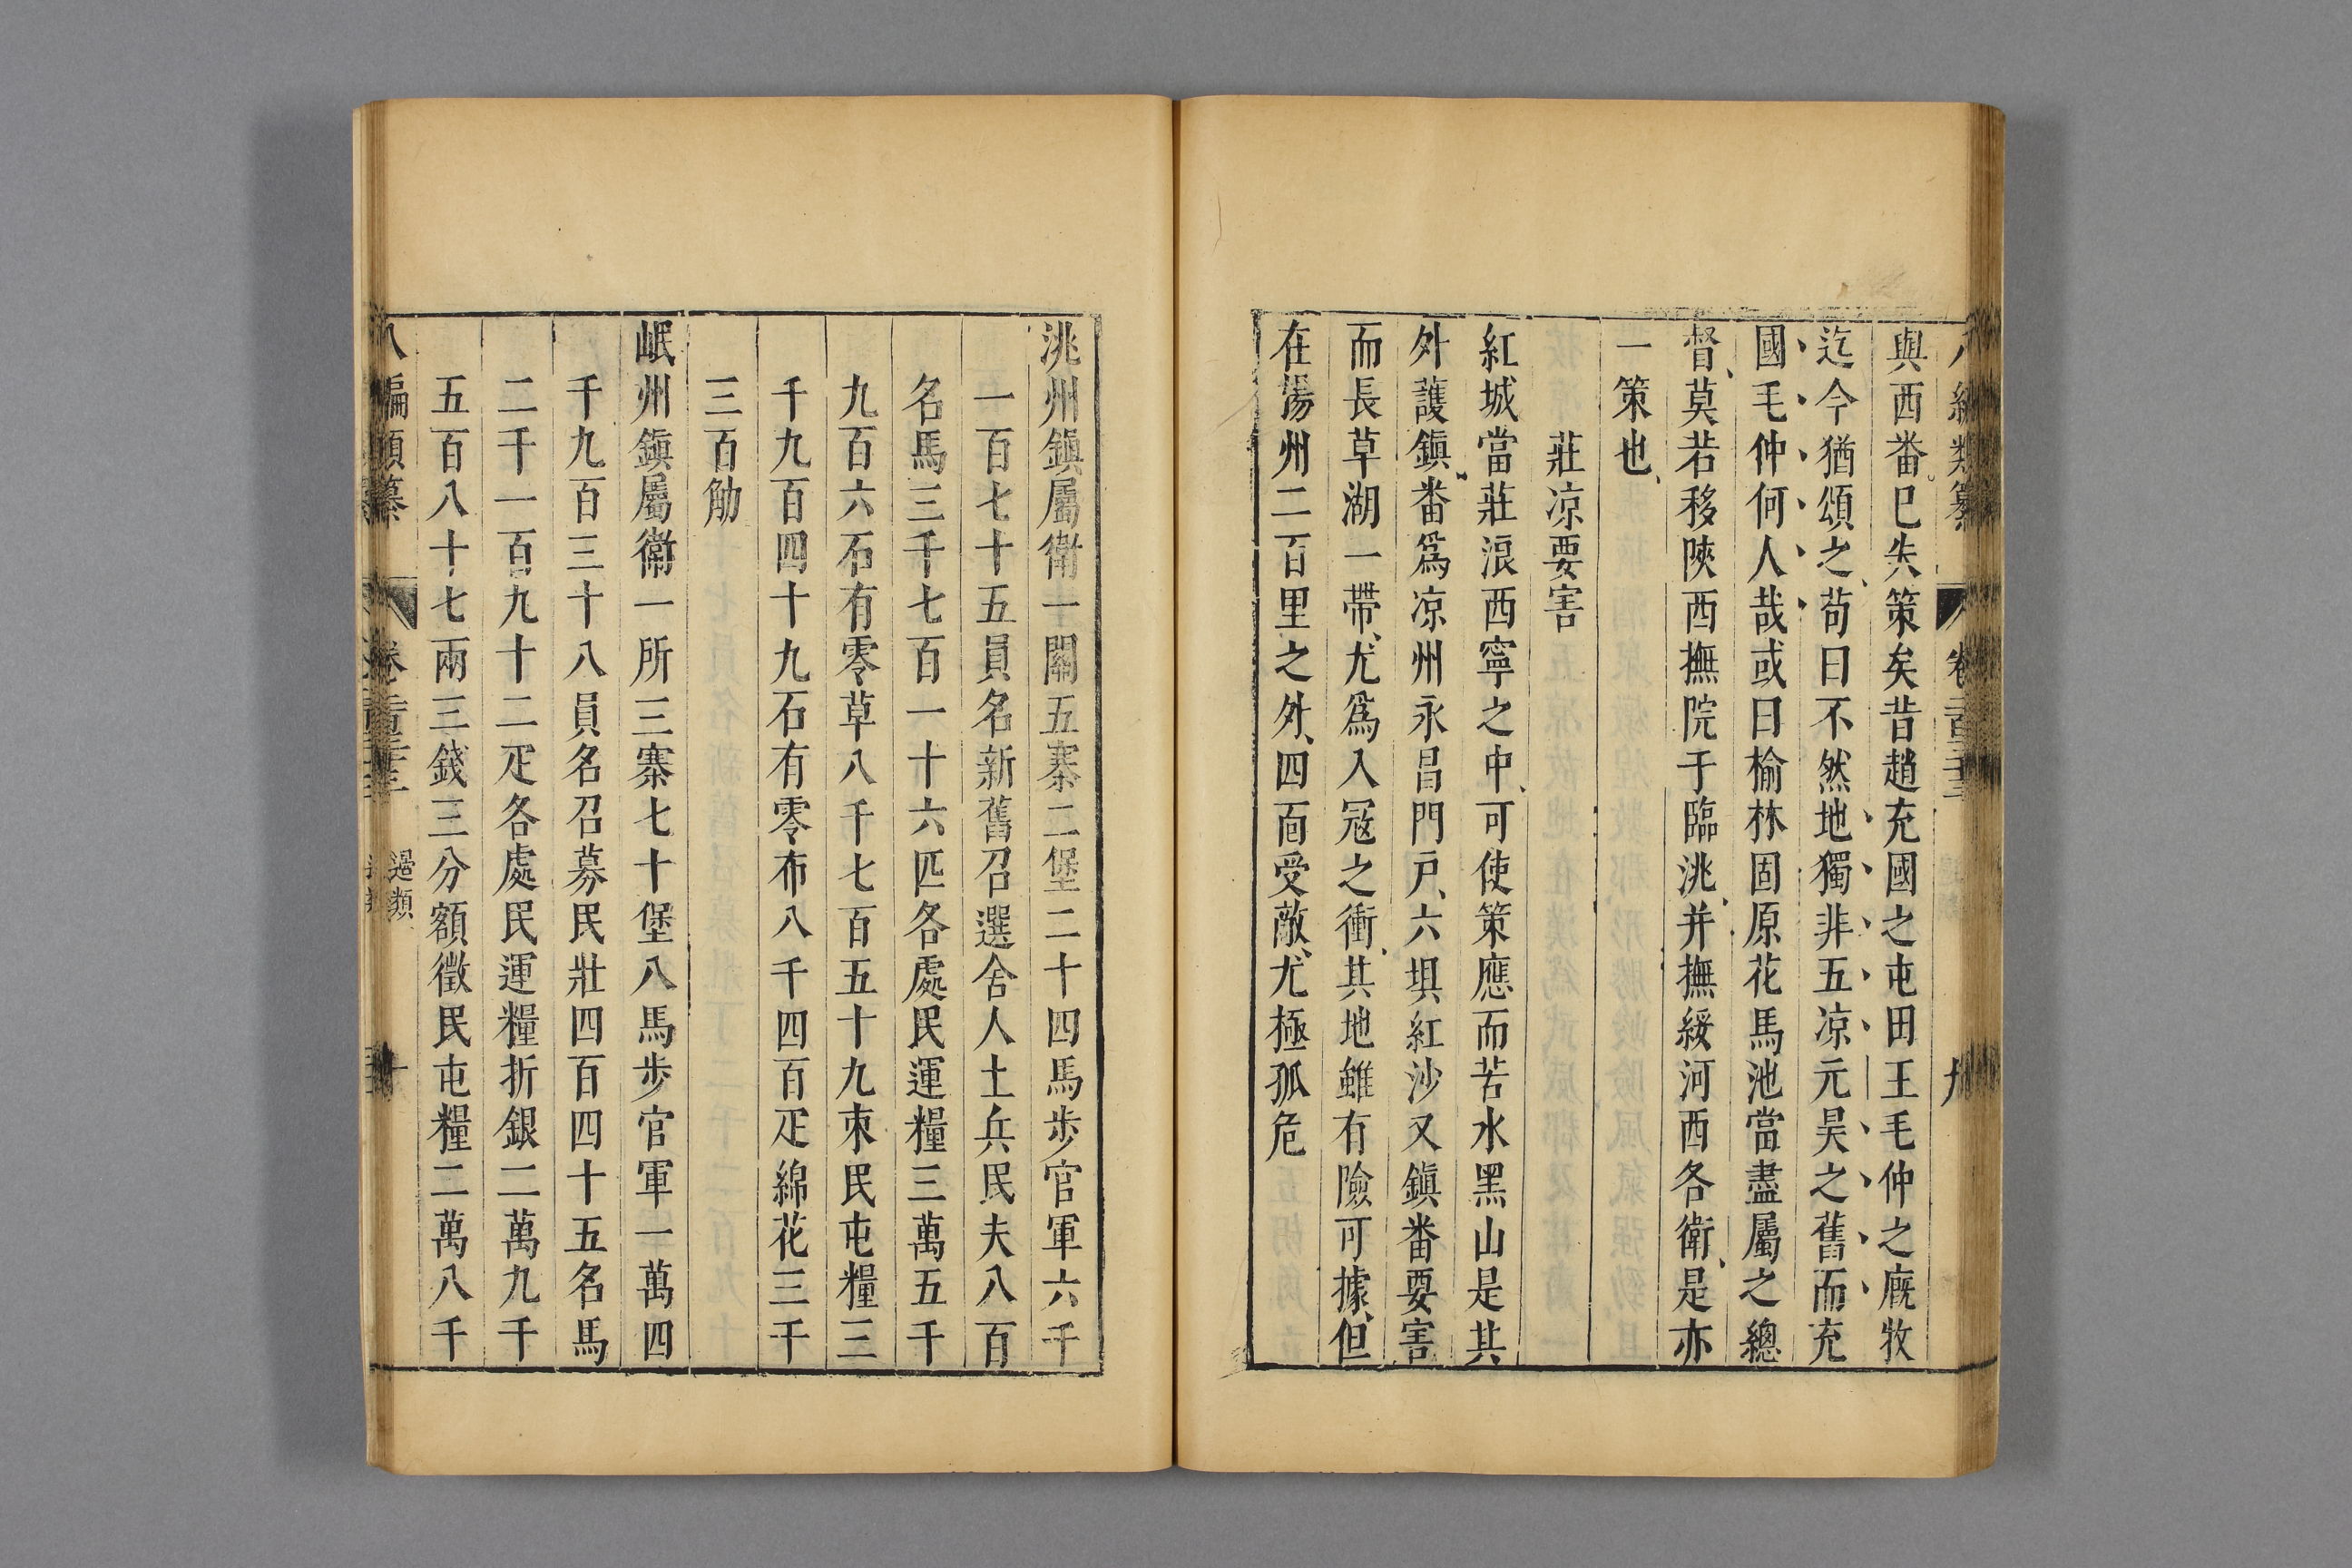 與西畨巳失策矣昔趙充國之屯田王毛仲之廐牧
迄今猶頌之苟曰不然地獨非五凉元昊之舊而充
國毛仲何人哉或曰榆林固原花馬池當盡屬之總
督莫若移陝西撫院于臨洮并撫綏河西各衛是亦
一策也
莊凉要害
紅城當莊浪西寧之中可使策應而苦水黑山是其
外護鎮畨爲凉州永昌門戸六垻紅沙又鎮畨要害
而長草湖一帶尤爲入冦之衝其地雖有險可據但
在蕩州二百里之外四面受敵尤極孤危
洮州鎮屬衛一關五寨二堡二十四馬步官軍六千
一百七十五員名新舊召選舍人土兵民夫八百
名馬三千七百一十六匹各處民運糧三萬五千
九百六石有零草八千七百五十九束民屯糧三
千九百四十九石有零布八千四百疋綿花三千
三百觔
岷州鎮屬衛一所三寨七十堡八馬步官軍一萬四
千九百三十八員名召募民壯四百四十五名馬
二千一百九十二疋各處民運糧折銀二萬九千
五百八十七兩三錢三分額徵民屯糧二萬八千
八編類纂 邊類